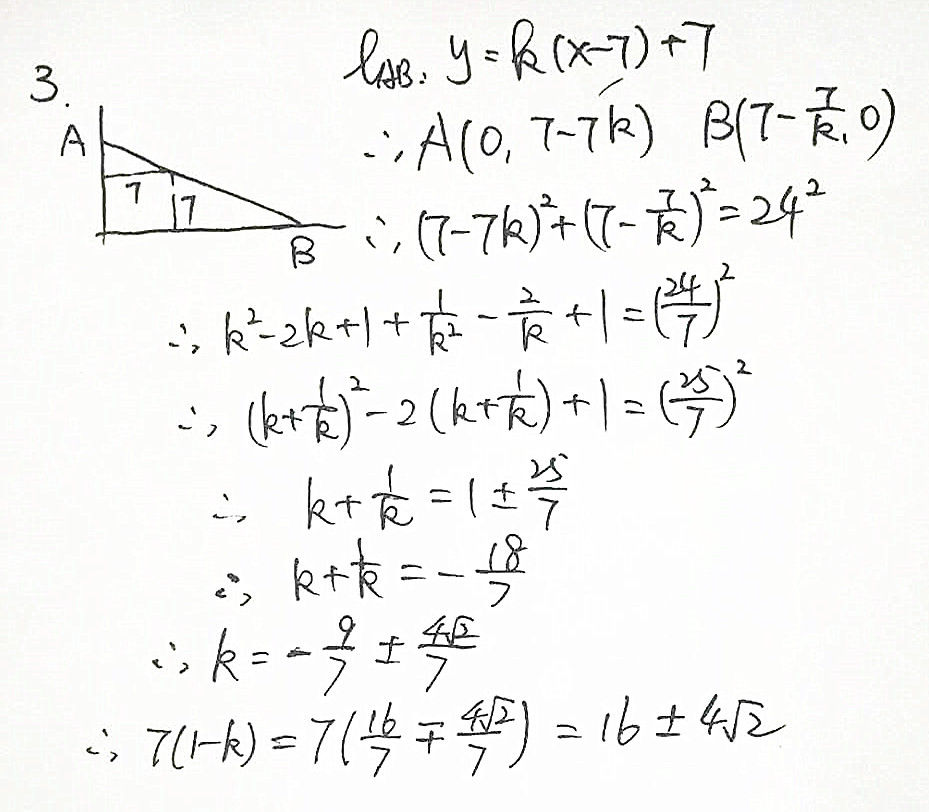 3.
l_{AB}: y = k(x-7)+7
∴ A(0, 7-7k) B(7-\frac{7}{k}, 0)
A
7
7
B
∴ (7-7k)^2+(7-\frac{7}{k})^2=24^2
∴ k^2-2k+1+\frac{1}{k^2}-\frac{2}{k}+1=(\frac{24}{7})^2
∴ (k+\frac{1}{k})^2-2(k+\frac{1}{k})+1=(\frac{25}{7})^2
∴ k+\frac{1}{k}=1±\frac{25}{7}
∴ k+\frac{1}{k}=-\frac{18}{7}
∴ k=-\frac{9}{7}±\frac{4\sqrt{2}}{7}
∴ 7(1-k)=7(\frac{16}{7}∓\frac{4\sqrt{2}}{7})=16±4\sqrt{2}